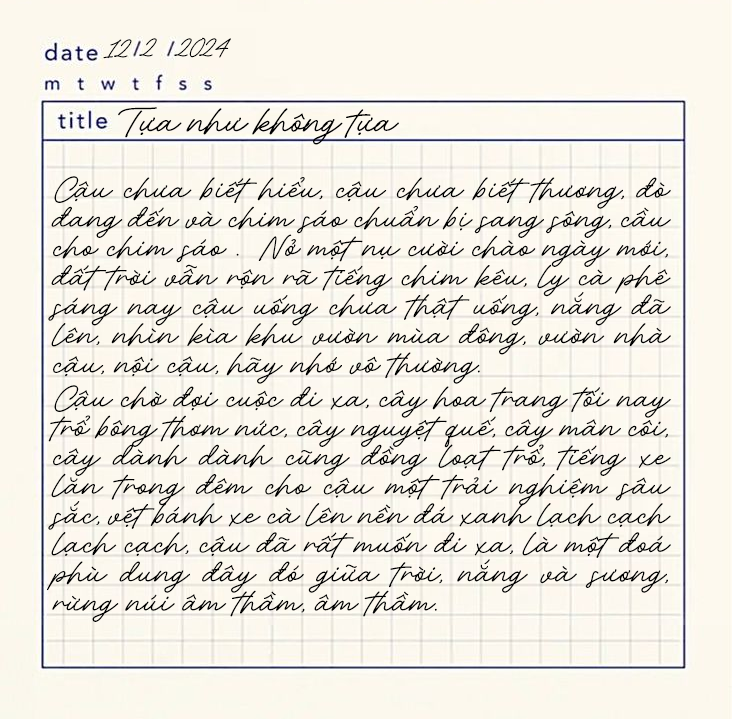 date 12/2 /2024
m t w t f s s
title Tựa như không tựa
Cậu chưa biết hiểu, cậu chưa biết thương, đò
đang đến và chim sáo chuẩn bị sang sông, cầu
cho chim sáo . Nở một nụ cười chào ngày mới,
đất trời vẫn rộn rã tiếng chim kêu, ly cà phê
sáng nay cậu uống chưa thật uống, nắng đã
lên, nhìn kìa khu vườn mùa đông, vườn nhà
cậu, nội cậu, hãy nhớ vô thường.
Cậu chờ đợi cuộc đi xa, cây hoa trang tối nay
trổ bông thơm nức, cây nguyệt quế, cây mân côi,
cây dành dành cũng đồng loạt trổ, tiếng xe
lăn trong đêm cho cậu một trải nghiệm sâu
sắc, vệt bánh xe cà lên nền đá xanh lạch cạch
lạch cạch, cậu đã rất muốn đi xa, là một đoá
phù dung đây đó giữa trời, nắng và sương,
rừng núi âm thầm, âm thầm.